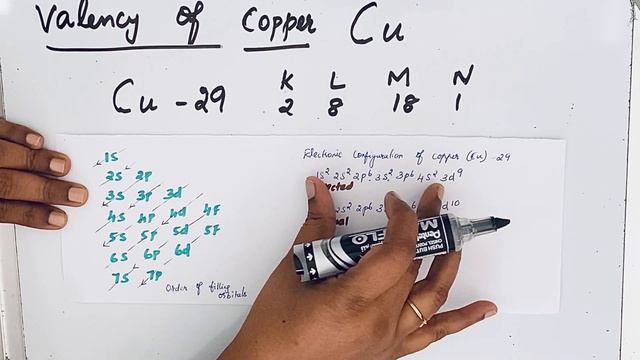 Valency of copper Cu
K L M N
Cu - 29 2 8 18 1
1s
2s 2p
3s 3p 3d
4s 4p 4d 4F
5s 5p 5d 5F
6s 6p 6d
7s 7p
Order of filling
orbitals
Electronic configuration of copper (Cu) - 29
1s² 2s² 2p⁶ 3s² 3p⁶ 4s² 3d⁹
2s² 2p⁶
d¹⁰
Pentel
PUSH BUTTON